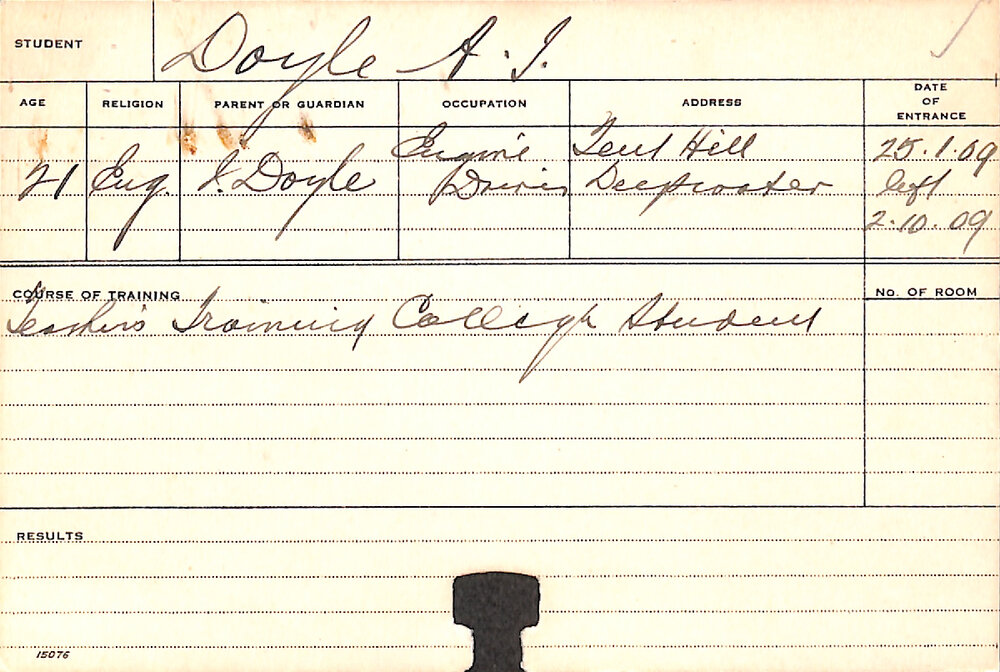 STUDENT Doyle A. J.
AGE RELIGION PARENT OR GUARDIAN OCCUPATION ADDRESS DATE OF ENTRANCE
Engine Tent Hill 25.1.09
21 Eng. J. Doyle Driver Deepwater left
2.10.09
COURSE OF TRAINING No. OF ROOM
Teachers Training College Student
RESULTS
15076